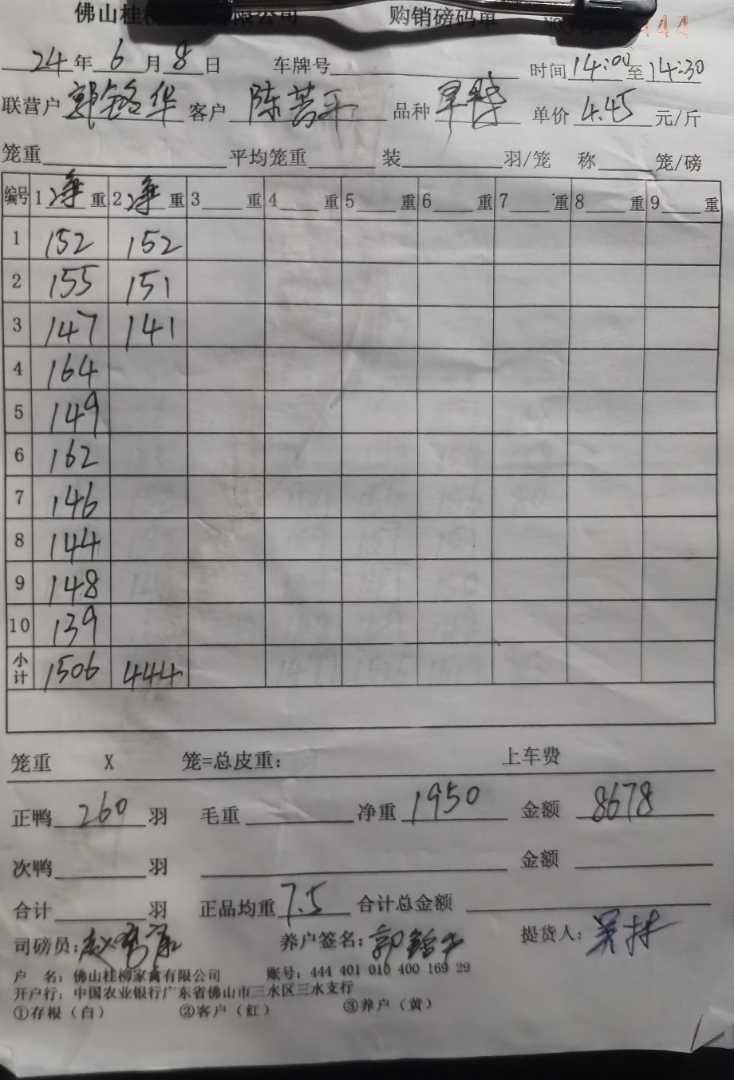 佛山桂柳 限公司 购销磅码单
24年6月8日 车牌号 时间14:00至14:30
联营户郭铭华 客户陈苦平 品种 单价4.45元/斤
笼重 平均笼重 装 羽/笼 称 笼/磅
编号 1净重 2净重 3 重 4 重 5 重 6 重 7 重 8 重 9 重
1 152 152
2 155 151
3 147 141
4 164
5 149
6 162
7 146
8 144
9 148
10 139
小计 1506 444
笼重 X 笼=总皮重: 上车费
正鸭260羽 毛重 净重1950 金额8678
次鸭 羽 金额
合计 羽 正品均重7.5 合计总金额
司磅员: 养户签名: 提货人:
户 名: 佛山桂柳家禽有限公司 账号: 444 401 010 400 169 29
开户行: 中国农业银行广东省佛山市三水区三水支行
①存根(白) ②客户(红) ③养户(黄)